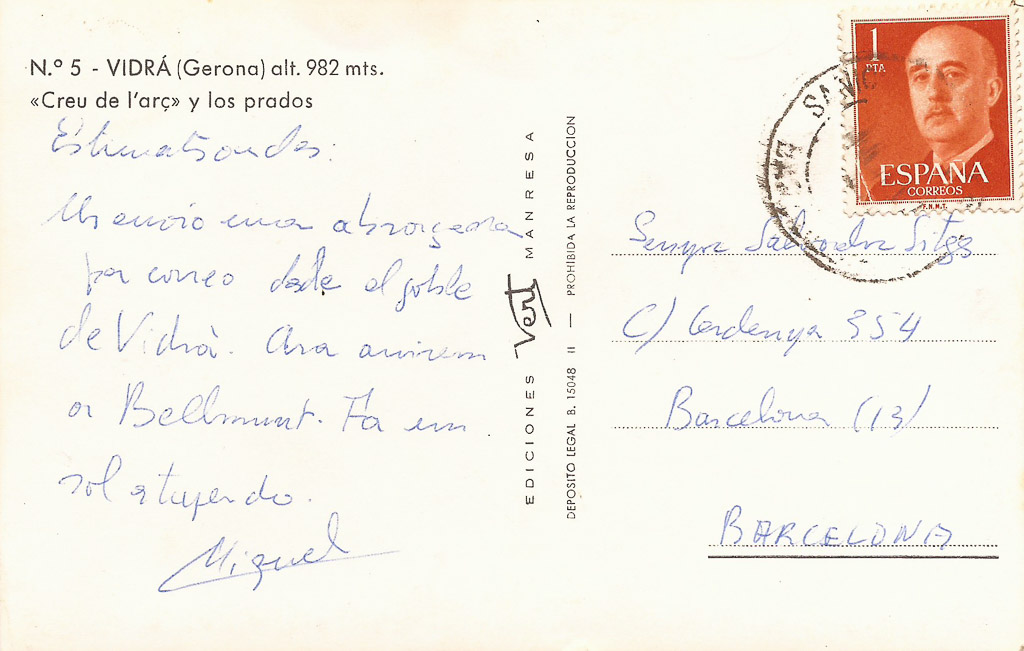 N.º 5 - VIDRÁ (Gerona) alt. 982 mts.
«Creu de l'arç» y los prados
Us envio una abraçada
per correo desde el poble
de Vidrà. Ara anirem
a Bellmunt. Fa un
sol estupendo.
Miquel
EDICIONES Vert MANRESA
DEPOSITO LEGAL B. 15048 II — PROHIBIDA LA REPRODUCCION
1
PTA
ESPAÑA
CORREOS
F.N.M.T.
Senyor Salvador Sitges
C/ Cerdenya 354
Barcelona (13)
BARCELONA